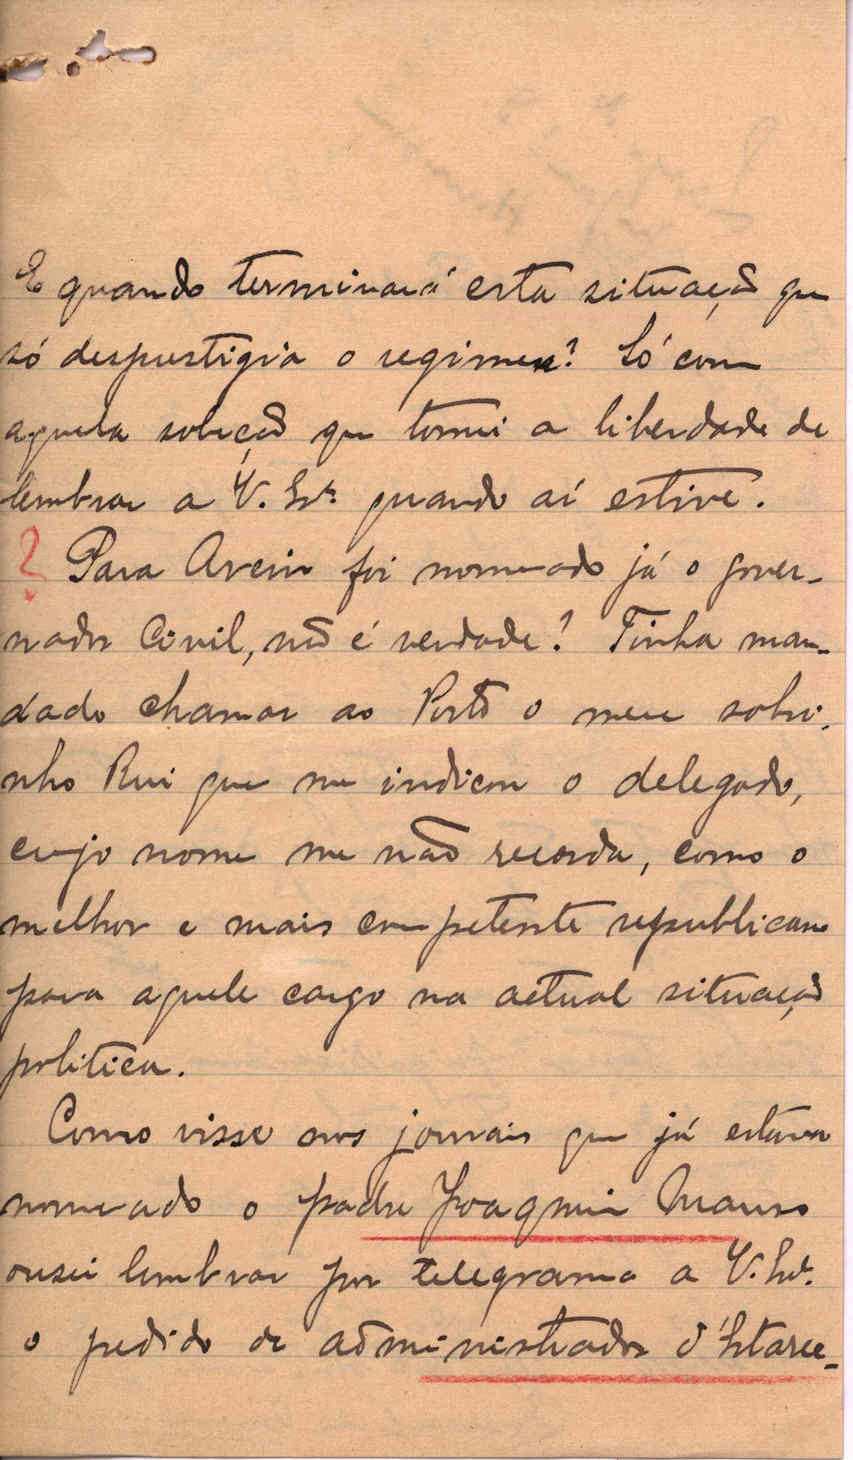 E quando terminará esta situação que
só desprestigia o regimen? Só com
aquela solução que tomei a liberdade de
lembrar a V. Ex.ª quando aí estive.
? Para Aveiro foi nomeado já o gover-
nador Civil, não é verdade? Tinha man-
dado chamar ao Porto o meu sobri-
nho Rui que me indicou o delegado,
cujo nome me não recorda, como o
melhor e mais competente republicano
para aquele cargo na actual situação
politica.
Como visse nos jornais que já estava
nomeado o padre Joaquim
ousei lembrar por telegrama a V. Ex.ª
o pedido de administrador d'Estarre-